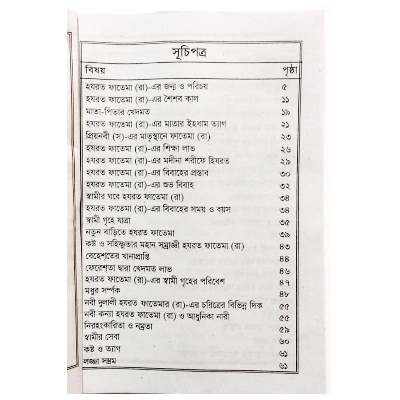 সূচিপত্র
বিষয় পৃষ্ঠা
হযরত ফাতেমা (রা)-এর জন্ম ও পরিচয় ৫
হযরত ফাতেমা (রা)-এর শৈশব কাল ১১
মাতা-পিতার খেদমত ১৯
হযরত ফাতেমা (রা)-এর মাতার ইহধাম ত্যাগ ২১
প্রিয়নবী (স)-এর মাতৃস্থানে ফাতেমা (রা) ২৩
হযরত ফাতেমা (রা)-এর শিক্ষা লাভ ২৬
হযরত ফাতেমা (রা)-এর মদীনা শরীফে হিযরত ২৯
হযরত ফাতেমা (রা)-এর বিবাহের প্রস্তাব ৩০
হযরত ফাতেমা (রা)-এর শুভ বিবাহ ৩২
স্বামীর ঘরে হযরত ফাতেমা (রা) ৩৪
হযরত ফাতেমা (রা)-এর বিবাহের সময় ও বয়স ৩৪
স্বামী গৃহে যাত্রা ৩৫
নতুন বাড়িতে হযরত ফাতেমা ৩৯
কষ্ট ও সহিষ্ণুতার মহান সম্রাজ্ঞী হযরত ফাতেমা (রা) ৪৩
বেহেশ্তের খানাপ্রাপ্তি ৪৪
ফেরেশ্তা দ্বারা খেদমত লাভ ৪৬
হযরত ফাতেমা (রা)-এর স্বামী গৃহের পরিবেশ ৪৭
মধুর সম্পর্ক ৪৮
নবী দুলালী হযরত ফাতেমার (রা)-এর চরিত্রের বিভিন্ন দিক ৫৫
নবী কন্যা হযরত ফাতেমা (রা) ও আধুনিকা নারী ৫৫
নিরহংকারিতা ও নম্রতা ৫৯
স্বামীর সেবা ৬০
কষ্ট ও ত্যাগ ৬১
লজ্জা সম্ভ্রম ৬১